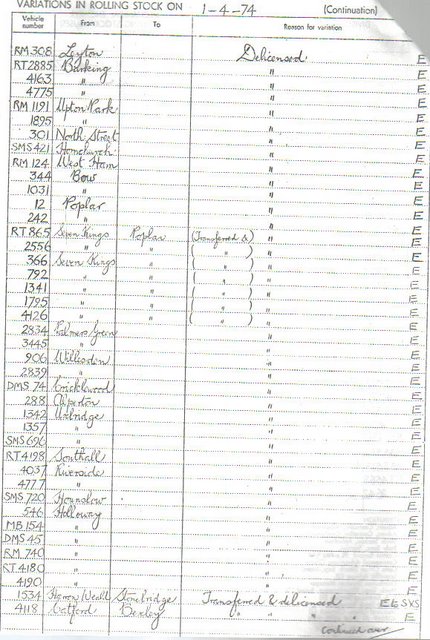 VARIATIONS IN ROLLING STOCK ON 1-4-74 (Continuation)
Vehicle number From To Reason for variation
RM 308 Leyton Delicensed E
RT 2885 Barking " E
4163 " " E
4775 " " E
RM 1191 Upton Park " E
1895 " " E
301 North Street " E
SMS 421 Hornchurch " E
RM 124 West Ham " E
344 Bow " E
1031 " " E
12 Poplar " E
242 " " E
RT 865 Seven Kings Poplar (Transferred &) " E
2556 " " ( " ) " E
366 Seven Kings " ( " ) " E
792 " " ( " ) " E
1341 " " ( " ) " E
1795 " " ( " ) " E
4126 " " ( " ) " E
2834 Palmers Green " E
3445 " " E
906 Willesden " E
2839 " " E
DMS 74 Cricklewood " E
288 Alperton " E
1342 Uxbridge " E
1357 " " E
SMS 696 " " E
RT 4198 Southall " E
4037 Riverside " E
4777 " " E
SMS 720 Hounslow " E
546 Holloway " E
MB 154 " " E
DMS 45 " " E
RM 740 " " E
RT 4180 " " E
4190 " " E
1534 Harrow Weald Stonebridge Transferred & delicensed E
4118 Catford Bexley " " " E
Continued over